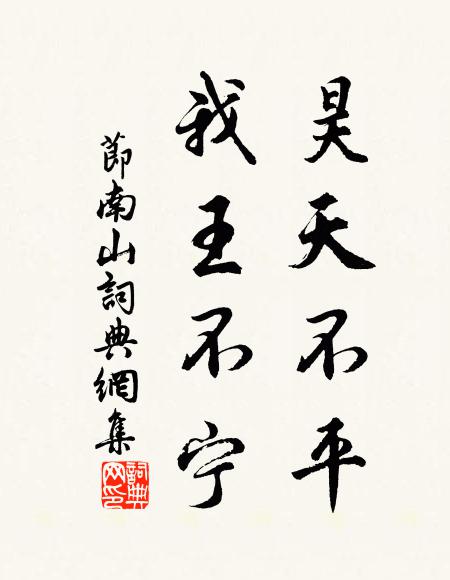 昊天不平
我王不宁
節南山詞典網集
詞典网印